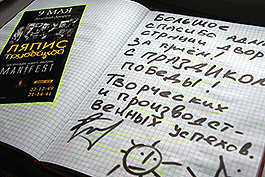 9 МАЯ
ЛЯПИС
ТРУБЕЦКОЙ
MANIFEST
22-12-69
21-14-41
БОЛЬШОЕ
СПАСИБО
ЗА ПРИЁМ
С ПРАЗДНИКОМ
ПОБЕДЫ!
ТВОРЧЕСКИХ
И ПРОИЗВОДСТ-
ВЕННЫХ УСПЕХОВ.